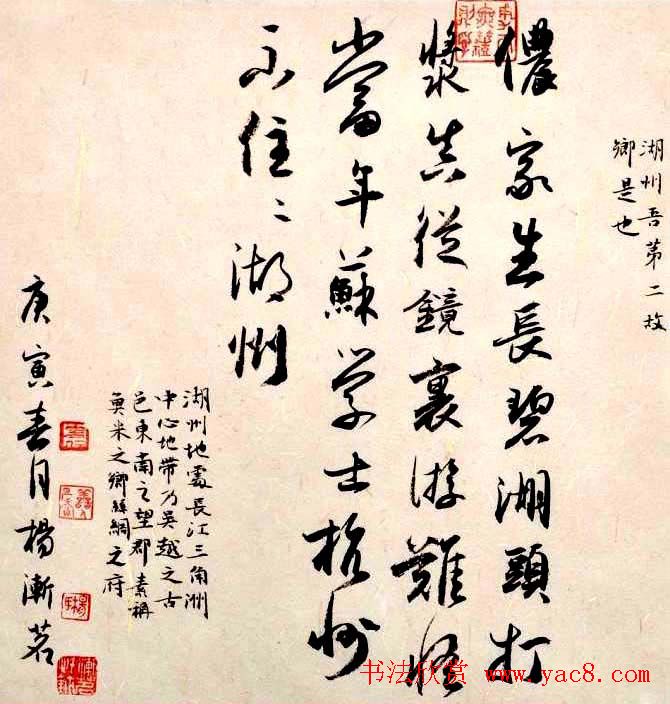 湖州吾第二故
鄉是也
儂家生長碧湖頭打
槳真從鏡裏游難怪
當年蘇學士杭州
不住住湖州
湖州地處長江三角洲
中心地帶乃吳越之古
邑東南之望郡素稱
魚米之鄉絲綢之府
庚寅春月楊漸茗
书法欣赏 www.yac8.com